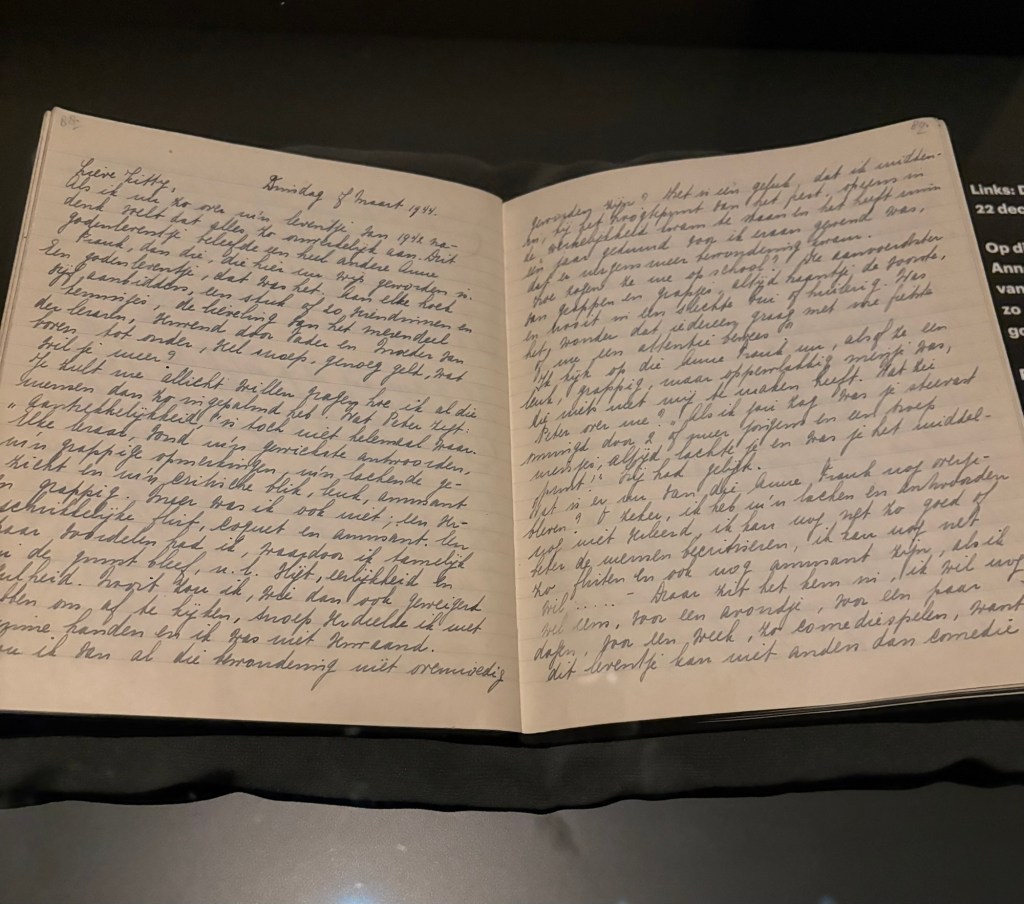 Lieve Kitty,
Dinsdag 7 Maart 1944.
Als ik nu zo over m'n leventje van 1942 na-
denk voelt dat alles zo onwerkelijk aan. Dit
godenleventje beleefde een heel andere Anne
Frank, dan die, die hier nu wijs geworden is.
Een godenleventje, dat was het. Aan elke hoek
vijf aanbidders, een stuk of 20 vriendinnen en
kennisjes, de lieveling van het merendeel
der leraren, verwend door Vader en Moeder van
boven tot onder, veel snoep, genoeg geld, wat
wil je meer?
Je zult me allicht willen vragen hoe ik al die
mensen dan zo ingepalmd heb. Wat Peter zegt:
"aantrekkelijkheid" is toch niet helemaal waar.
Elke leraar vond m'n gewiekste antwoorden,
m'n grappige opmerkingen, m'n lachende ge-
zicht en m'n critische blik, leuk, amusant
en grappig. Meer was ik ook niet; een ver-
schrikkelijke flirt, coquet en amusant. Een
paar voordelen had ik, waardoor ik tamelijk
in de gunst bleef, n.l. vlijt, eerlijkheid en
gulheid. Nooit zou ik, wie dan ook geweigerd
hebben om af te kijken, snoep verdeelde ik met
handen en ik was niet verwaand.
Zou ik van al die bewondering niet overmoedig
geworden zijn? Het is één geluk, dat ik midden-
in, bij het hoogtepunt van het feest, opeens in
de werkelijkheid kwam te staan en het heeft ruim
een jaar geduurd voor ik eraan gewend was,
dat er nergens meer bewondering kwam.
Hoe zagen ze me op school? De aanvoerdster
van grappen en grapjes, altijd haantje de voorste,
en nooit in een slechte bui of huilerig. Was
het wonder dat iedereen graag met me fietste
of me een attentie bewees?
Ik kijk op die Anne Frank nu, alsof ze een
leuk, grappig, maar oppervlakkig meisje was,
die niets met mij te maken heeft. Wat zei
Peter over me? "Als ik jou zag was je steevast
omringd door 2 of meer jongens en een troep
meisjes, altijd lachte je en was je het middel-
punt"! Hij had gelijk.
Wat is er nu van die Anne Frank nog overge-
bleven? O zeker, ik heb m'n lachen en antwoorden
nog niet verleerd, ik kan nog net zo goed of
beter de mensen becritiseren, ik kan nog net
zo fluiten en ook nog amusant zijn, als ik
wil ..... - Daar zit het hem in, ik wil nog
wel eens, voor een avondje, voor een paar
dagen, voor een week, zo comediespelen, want
dit leventje kan niet anders dan comedie
Links: D
22 dec
Op di
Ann
van
zo
ge